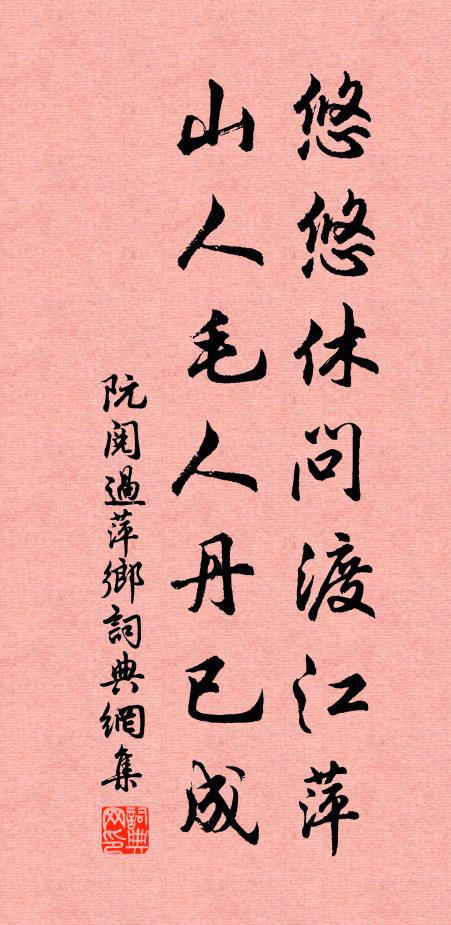 悠悠休問渡江萍
山人毛人丹已成
阮閱過萍鄉詞典網集
詞典网印